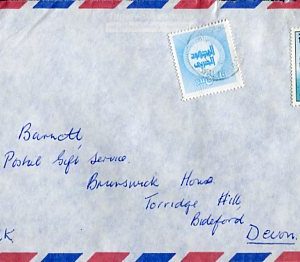 Barnett
Postal Gift Service.
Brunswick House
Torridge Hill
Bideford
Devon.
K